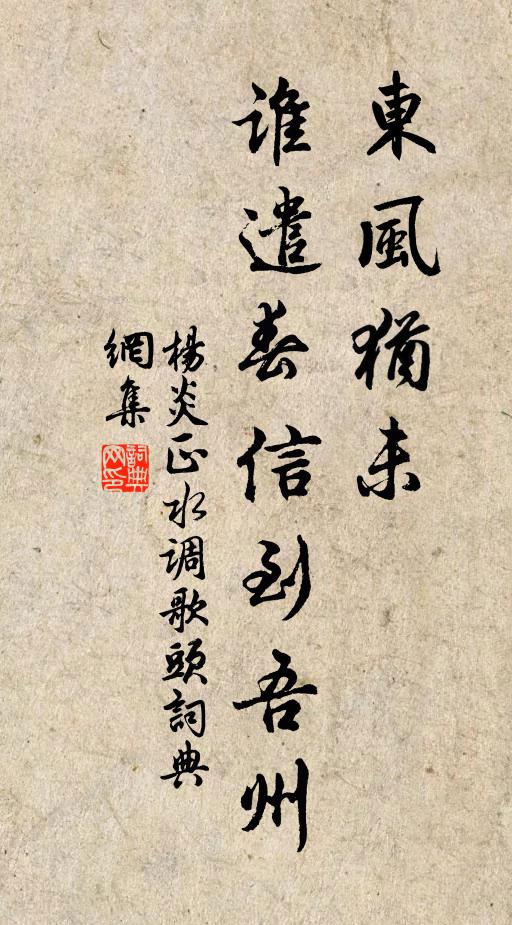 東風猶未
誰遣春信到吾州
楊炎正水調歌頭詞典
網集
詞典
网印